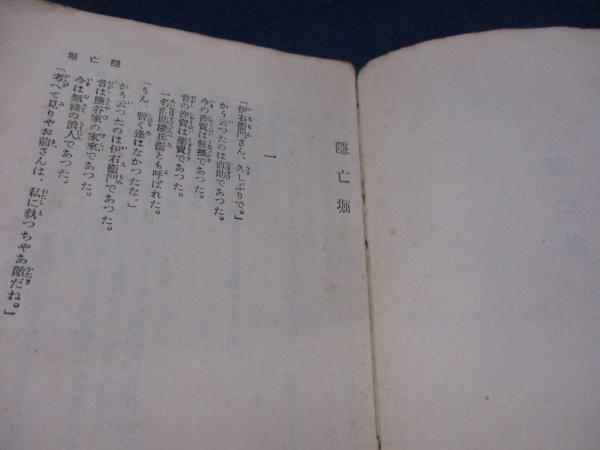 隱亡堀
一
「伊右衞門さん、久しぶりで。」
かう云つたのは直助であつた。
今の商賣は鰻搔であつた。
昔の商賣は藥賣であつた。
一名直助權兵衞とも呼ばれた。
「うん、暫く逢はなかつたな。」
かう云つたのは伊右衞門であつた。
昔は鹽谷家の家來であつた。
今は無緣の浪人であつた。
「考へて見りやお前さんは、私に執つちやあ敵だね。」
隱亡堀